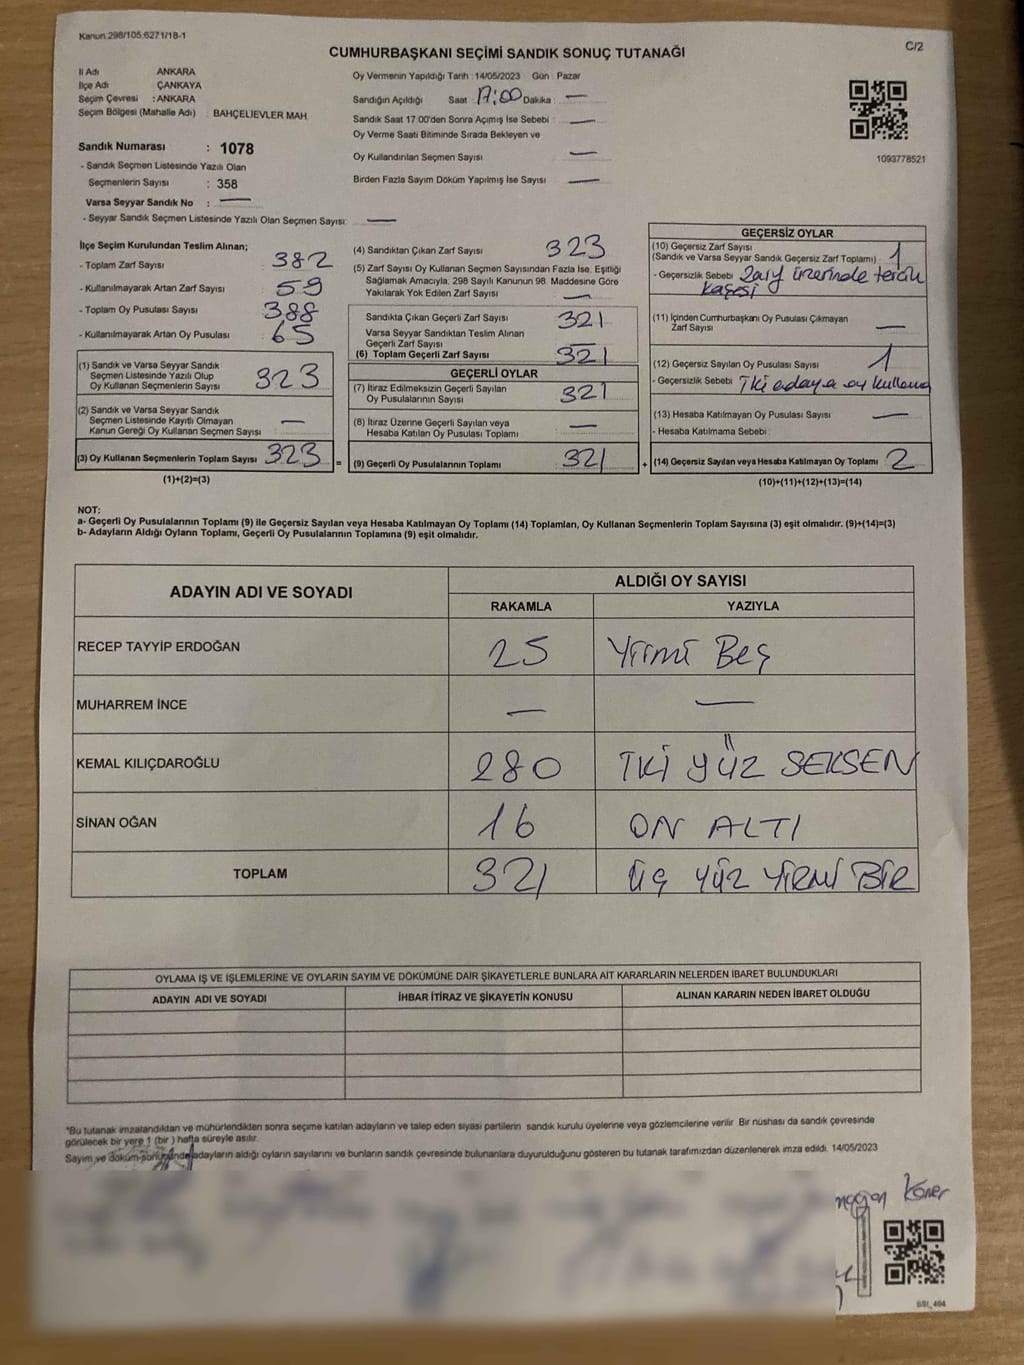 Kanun:298/105;6271/18-1
C/2
CUMHURBAŞKANI SEÇİMİ SANDIK SONUÇ TUTANAĞI
İl Adı ANKARA
İlçe Adı ÇANKAYA
Seçim Çevresi : ANKARA
Seçim Bölgesi (Mahalle Adı) : BAHÇELİEVLER MAH.
Oy Vermenin Yapıldığı Tarih : 14/05/2023 Gün : Pazar
Sandığın Açıldığı Saat : 17:00 Dakika : —
Sandık Saat 17:00'den Sonra Açımış İse Sebebi : —
Oy Verme Saati Bitiminde Sırada Bekleyen ve
Oy Kullandırılan Seçmen Sayısı —
Birden Fazla Sayım Döküm Yapılmış İse Sayısı —
1093778521
Sandık Numarası : 1078
- Sandık Seçmen Listesinde Yazılı Olan
Seçmenlerin Sayısı : 358
Varsa Seyyar Sandık No : —
- Seyyar Sandık Seçmen Listesinde Yazılı Olan Seçmen Sayısı: —
İlçe Seçim Kurulundan Teslim Alınan;
- Toplam Zarf Sayısı 382
- Kullanılmayarak Artan Zarf Sayısı 59
- Toplam Oy Pusulası Sayısı 388
- Kullanılmayarak Artan Oy Pusulası 65
(1) Sandık ve Varsa Seyyar Sandık
Seçmen Listesinde Yazılı Olup
Oy Kullanan Seçmenlerin Sayısı 323
(2) Sandık ve Varsa Seyyar Sandık
Seçmen Listesinde Kayıtlı Olmayan
Kanun Gereği Oy Kullanan Seçmen Sayısı —
(3) Oy Kullanan Seçmenlerin Toplam Sayısı 323 =
(1)+(2)=(3)
(4) Sandıktan Çıkan Zarf Sayısı 323
(5) Zarf Sayısı Oy Kullanan Seçmen Sayısından Fazla İse, Eşitliği
Sağlamak Amacıyla, 298 Sayılı Kanunun 98. Maddesine Göre
Yakılarak Yok Edilen Zarf Sayısı —
Sandıkta Çıkan Geçerli Zarf Sayısı 321
Varsa Seyyar Sandıktan Teslim Alınan
Geçerli Zarf Sayısı —
(6) Toplam Geçerli Zarf Sayısı 321
GEÇERLİ OYLAR
(7) İtiraz Edilmeksizin Geçerli Sayılan
Oy Pusulalarının Sayısı 321
(8) İtiraz Üzerine Geçerli Sayılan veya
Hesaba Katılan Oy Pusulası Toplamı —
(9) Geçerli Oy Pusulalarının Toplamı 321 +
GEÇERSİZ OYLAR
(10) Geçersiz Zarf Sayısı 1
(Sandık ve Varsa Seyyar Sandık Geçersiz Zarf Toplamı)
- Geçersizlik Sebebi Zarf üzerinde tercih
kaşesi
(11) İçinden Cumhurbaşkanı Oy Pusulası Çıkmayan
Zarf Sayısı —
(12) Geçersiz Sayılan Oy Pusulası Sayısı 1
- Geçersizlik Sebebi İki adaya oy
(13) Hesaba Katılmayan Oy Pusulası Sayısı —
- Hesaba Katılmama Sebebi
(14) Geçersiz Sayılan veya Hesaba Katılmayan Oy Toplamı 2
(10)+(11)+(12)+(13)=(14)
NOT:
a- Geçerli Oy Pusulalarının Toplamı (9) ile Geçersiz Sayılan veya Hesaba Katılmayan Oy Toplamı (14) Toplamları, Oy Kullanan Seçmenlerin Toplam Sayısına (3) eşit olmalıdır. (9)+(14)=(3)
b- Adayların Aldığı Oyların Toplamı, Geçerli Oy Pusulalarının Toplamına (9) eşit olmalıdır.
ADAYIN ADI VE SOYADI
ALDIĞI OY SAYISI
RAKAMLA YAZIYLA
RECEP TAYYİP ERDOĞAN 25 Yirmi Beş
MUHARREM İNCE — —
KEMAL KILIÇDAROĞLU 280 İKİ YÜZ SEKSEN
SİNAN OĞAN 16 ON ALTI
TOPLAM 321 ÜÇ YÜZ YİRMİ BİR
OYLAMA İŞ VE İŞLEMLERİNE VE OYLARIN SAYIM VE DÖKÜMÜNE DAİR ŞİKAYETLERLE BUNLARA AİT KARARLARIN NELERDEN İBARET BULUNDUKLARI
ADAYIN ADI VE SOYADI İHBAR İTİRAZ VE ŞİKAYETİN KONUSU ALINAN KARARIN NEDEN İBARET OLDUĞU
*Bu tutanak imzalandıktan ve mühürlendikten sonra seçime katılan adayların ve talep eden siyasi partilerin sandık kurulu üyelerine veya gözlemcilerine verilir. Bir nüshası da sandık çevresinde
görülecek bir yere 1 (bir ) hafta süreyle asılır.
Sayım ve döküm sonucunda adayların aldığı oyların sayılarını ve bunların sandık çevresinde bulunanlara duyurulduğunu gösteren bu tutanak tarafımızdan düzenlenerek imza edildi. 14/05/2023